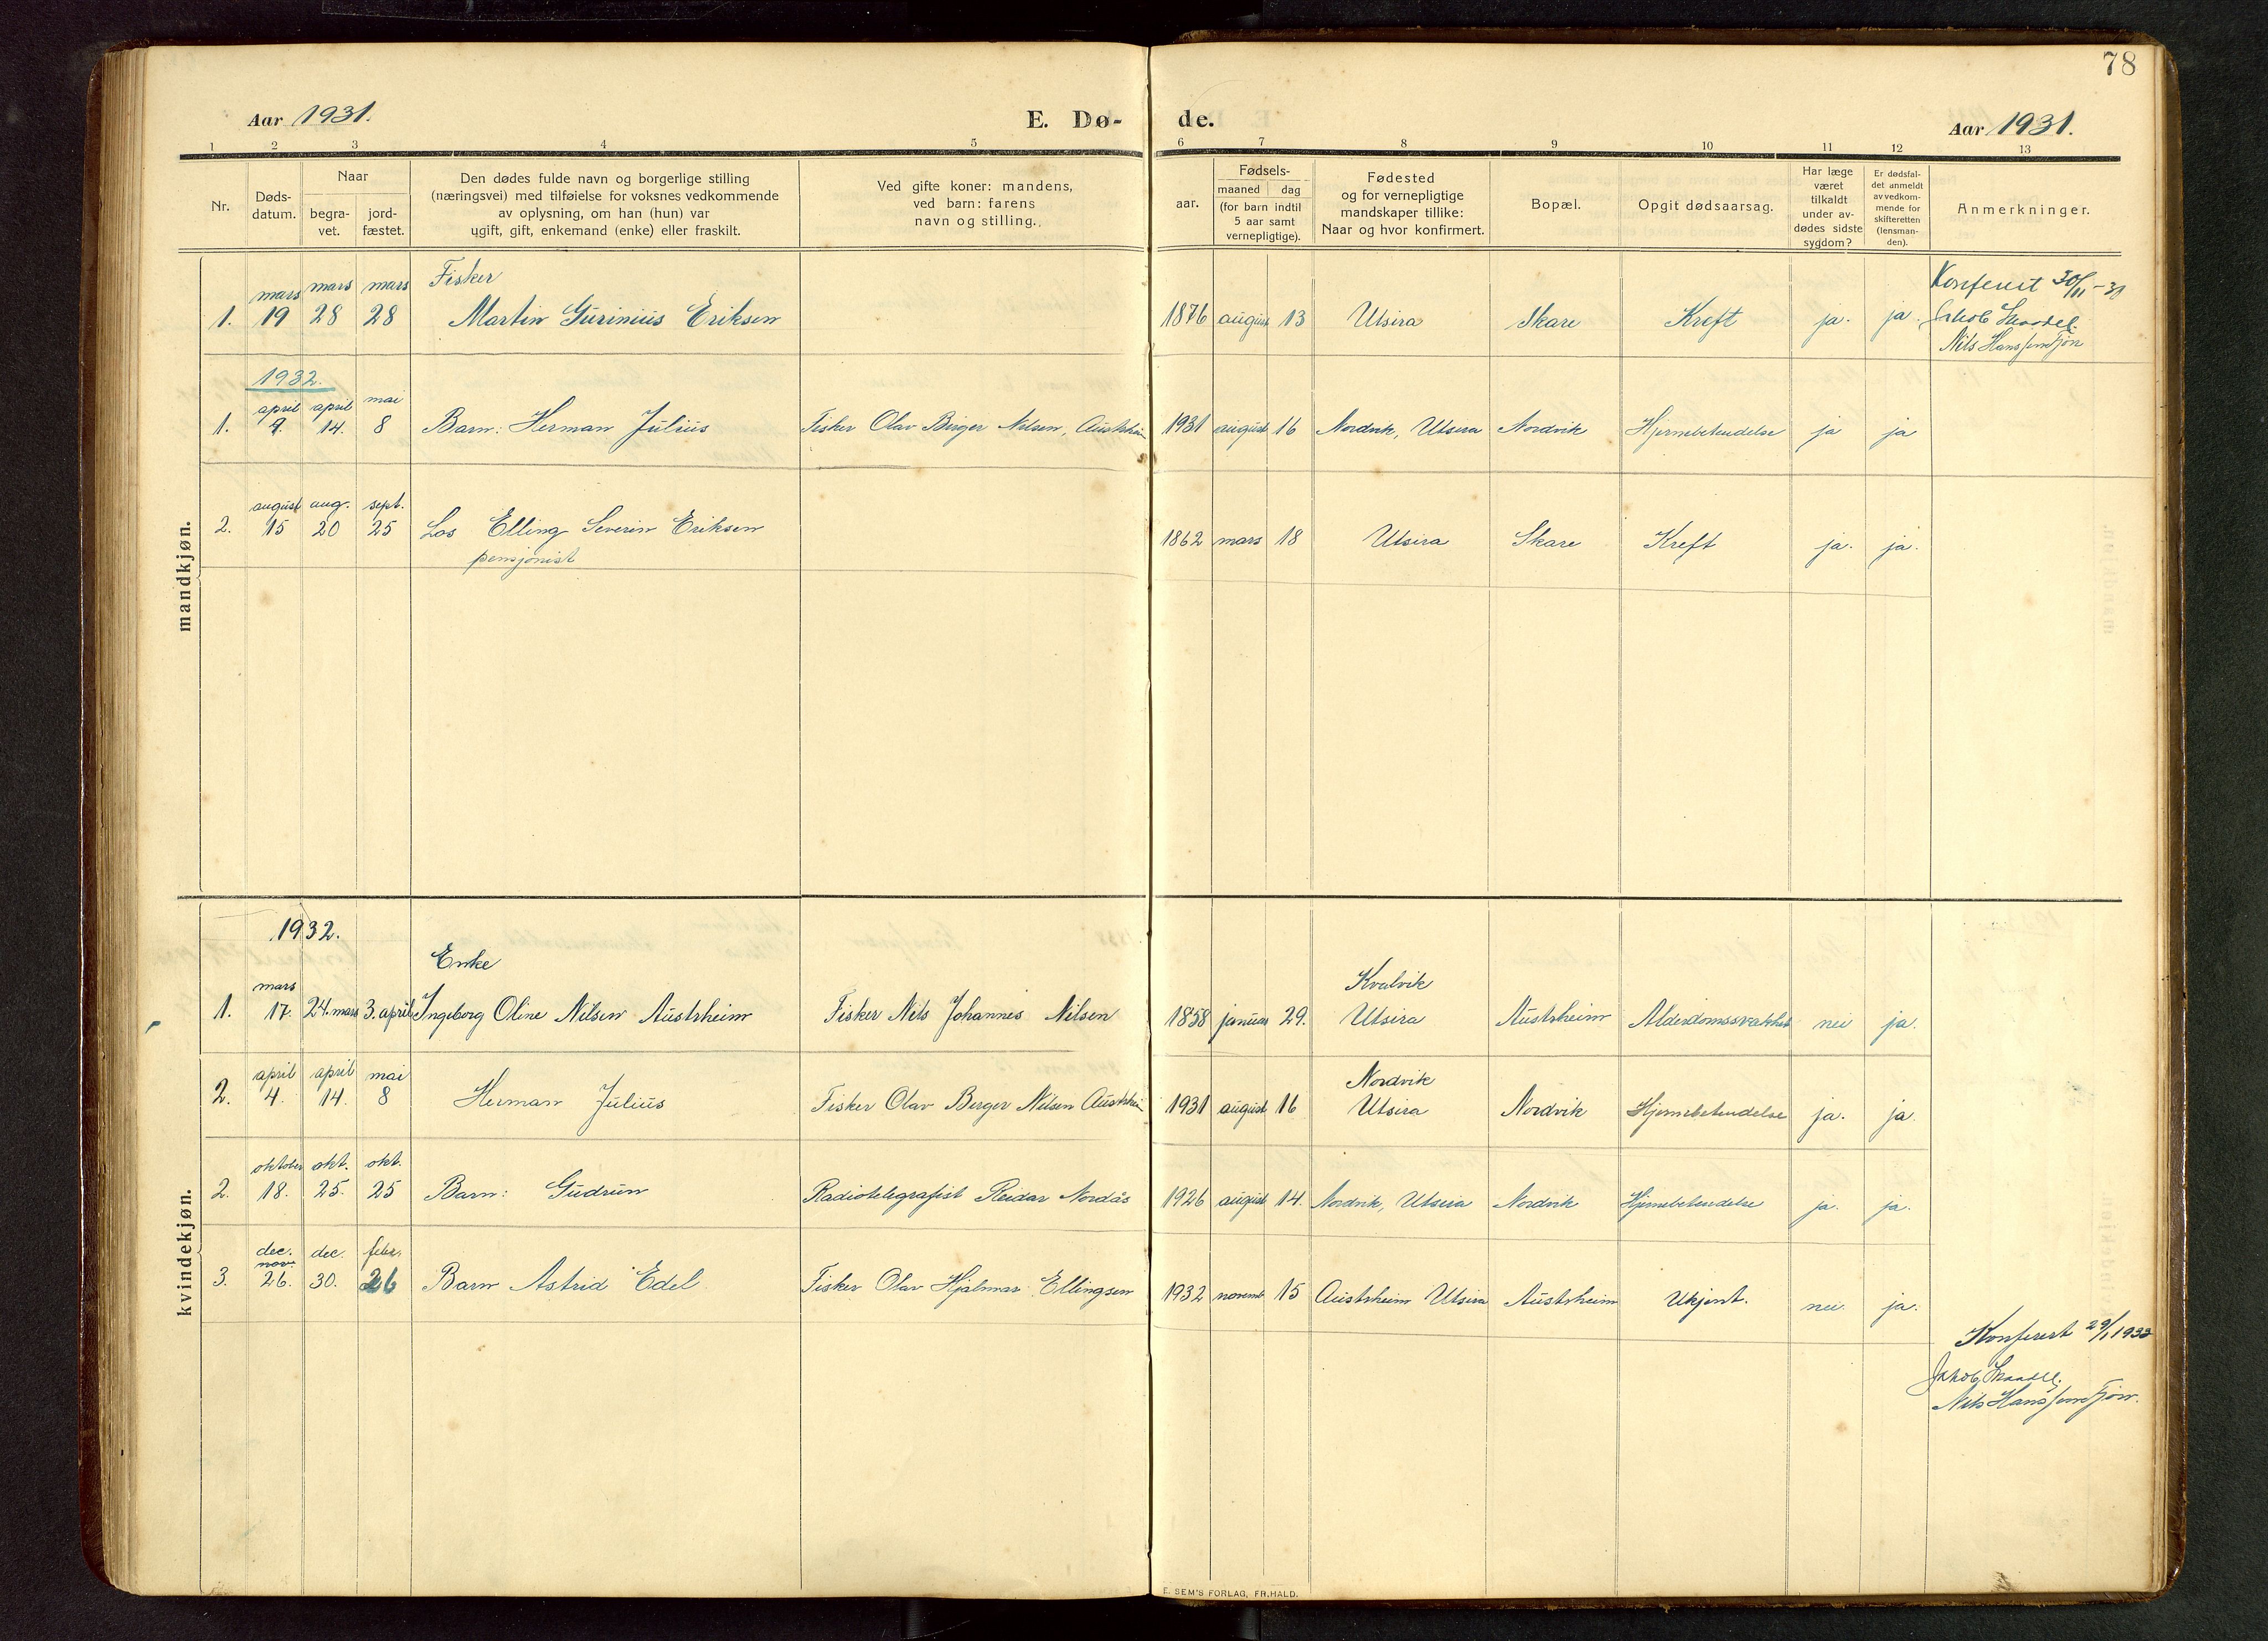 78
Aar 1931.
E. Dø-
de.
Aar 1931.
1 2 3 4 5 6 7 8 9 10 11 12 13
Nr.
Døds-
datum.
Naar
begra-
vet.
jord-
fæstet.
Den dødes fulde navn og borgerlige stilling
(næringsvei) med tilføielse for voksnes vedkommende
av oplysning, om han (hun) var
ugift, gift, enkemand (enke) eller fraskilt.
Ved gifte koner: mandens,
ved barn: farens
navn og stilling.
aar.
Fødsels-
maaned dag
(for barn indtil
5 aar samt
vernepligtige).
Fødested
og for vernepligtige
mandskaper tillike:
Naar og hvor konfirmert.
Bopæl.
Opgit dødsaarsag.
Har læge
været
tilkaldt
under av-
dødes sidste
sygdom?
Er dødsfal-
det anmeldt
av vedkom-
mende for
skifteretten
(lensman-
den).
Anmerkninger.
mandkjøn.
mars mars mars Fisker
1. 19 28 28 Martin Gurinius Eriksen 1876 august 13 Utsira Skare Kreft ja. ja.
Konferert 30/11-31
Jakob Skaadel.
Nils Hanssen Fjøn
1932.
april april mai
1. 9. 14. 8 Barn: Herman Julius Fisker Olav Birger Nilsen, Austrheim 1931 august 16 Nordvik, Utsira Nordvik Hjernebetendelse ja ja
august aug. sept.
2. 15 20 25 Los Elling Severin Eriksen 1862 mars 18 Utsira Skare Kreft ja. ja.
pensjonist
kvindekjøn.
1932.
Enke
mars Kvalvik
1. 17. 24. mars 3. april Ingeborg Oline Nilsen Austrheim Fisker Nils Johannes Nilsen 1858 januar 29. Utsira Austrheim Alderdomssvakhet nei ja.
april april mai Nordvik
2. 4. 14. 8 Herman Julius Fisker Olav Berger Nilsen Austrheim 1931 august 16 Utsira Nordvik Hjernebetendelse ja. ja.
oktober okt. okt.
2. 18. 25. 25 Barn: Gudrun Radiotelegrafist Reidar Nordås 1926 august 14. Nordvik, Utsira Nordvik Hjernebetendelse ja. ja.
dec. dec. febr.
nov.
3. 26. 30. 26 Barn Astrid Edel Fisker Olav Hjalmar Ellingsen 1932 novemb 15 Austrheim Utsira Austrheim Ukjent. nei. ja.
Konferert 29/1 1933
Jakob Skaadel.
Nils Hanssen Fjøn.
E. SEM'S FORLAG, FR.HALD.